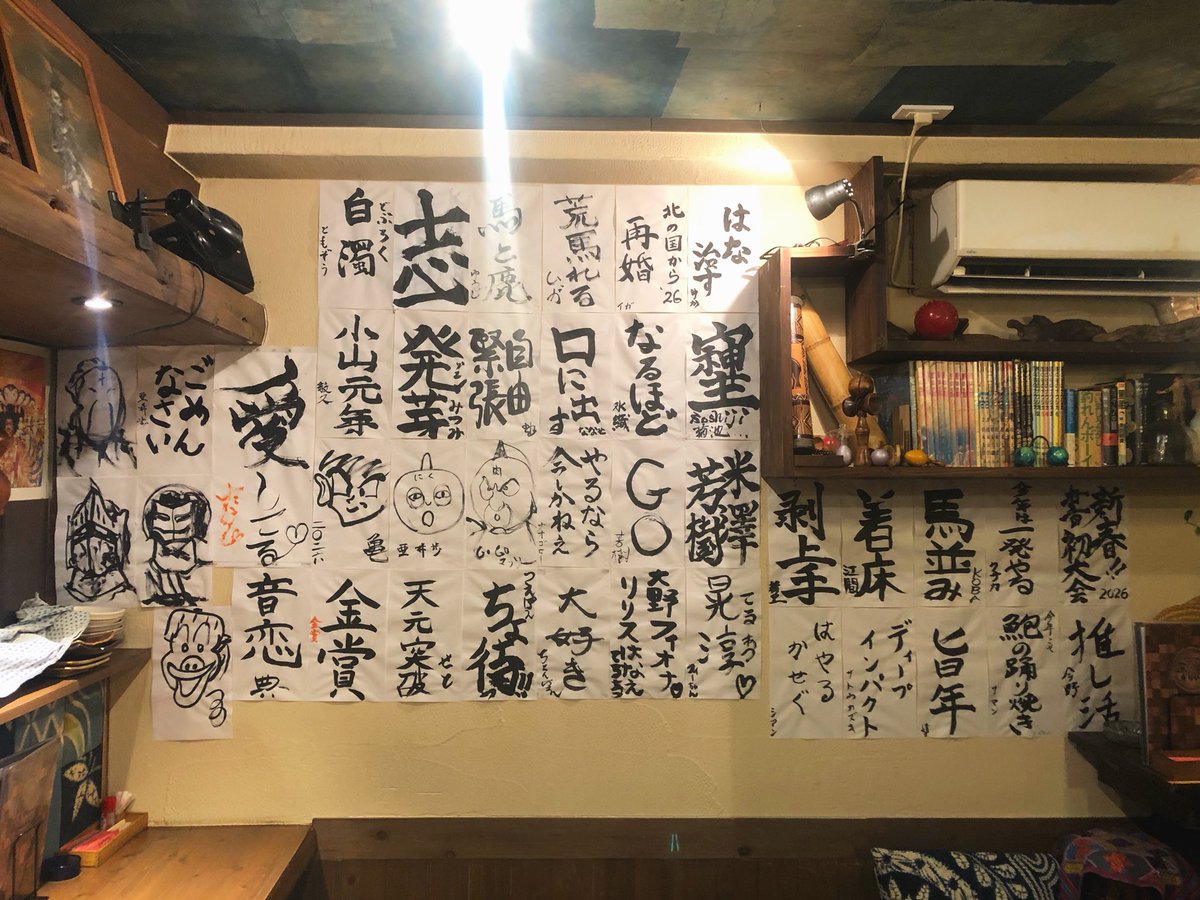 新春!!
書初大会
2026
はな
治す
北の国から
'26
再婚
イガ
荒馬れる
ひが
馬と鹿
志
白濁
どぶろく
ともぞう
なるほど
氷織
口に出す
ななと
自由
緊張
発芽
みつみ
小山元年
毅人
愛
ごめん
なさい
米澤
芳樹
GO
芳樹
やるなら
今っしかねぇ
肉
にく
亜井歩
亀
晃淳
♡
大野フィオナ♡
大好き
ちょ待っ!!
天元突破
せと
金賞
金賞
音恋
典
一発やる
馬並み
KOBA
着床
江間
剥上手
推し活
今野
鮑の踊り焼き
ヒヨ年
ディープ
インパクト
はやる
かせぐ
シアン